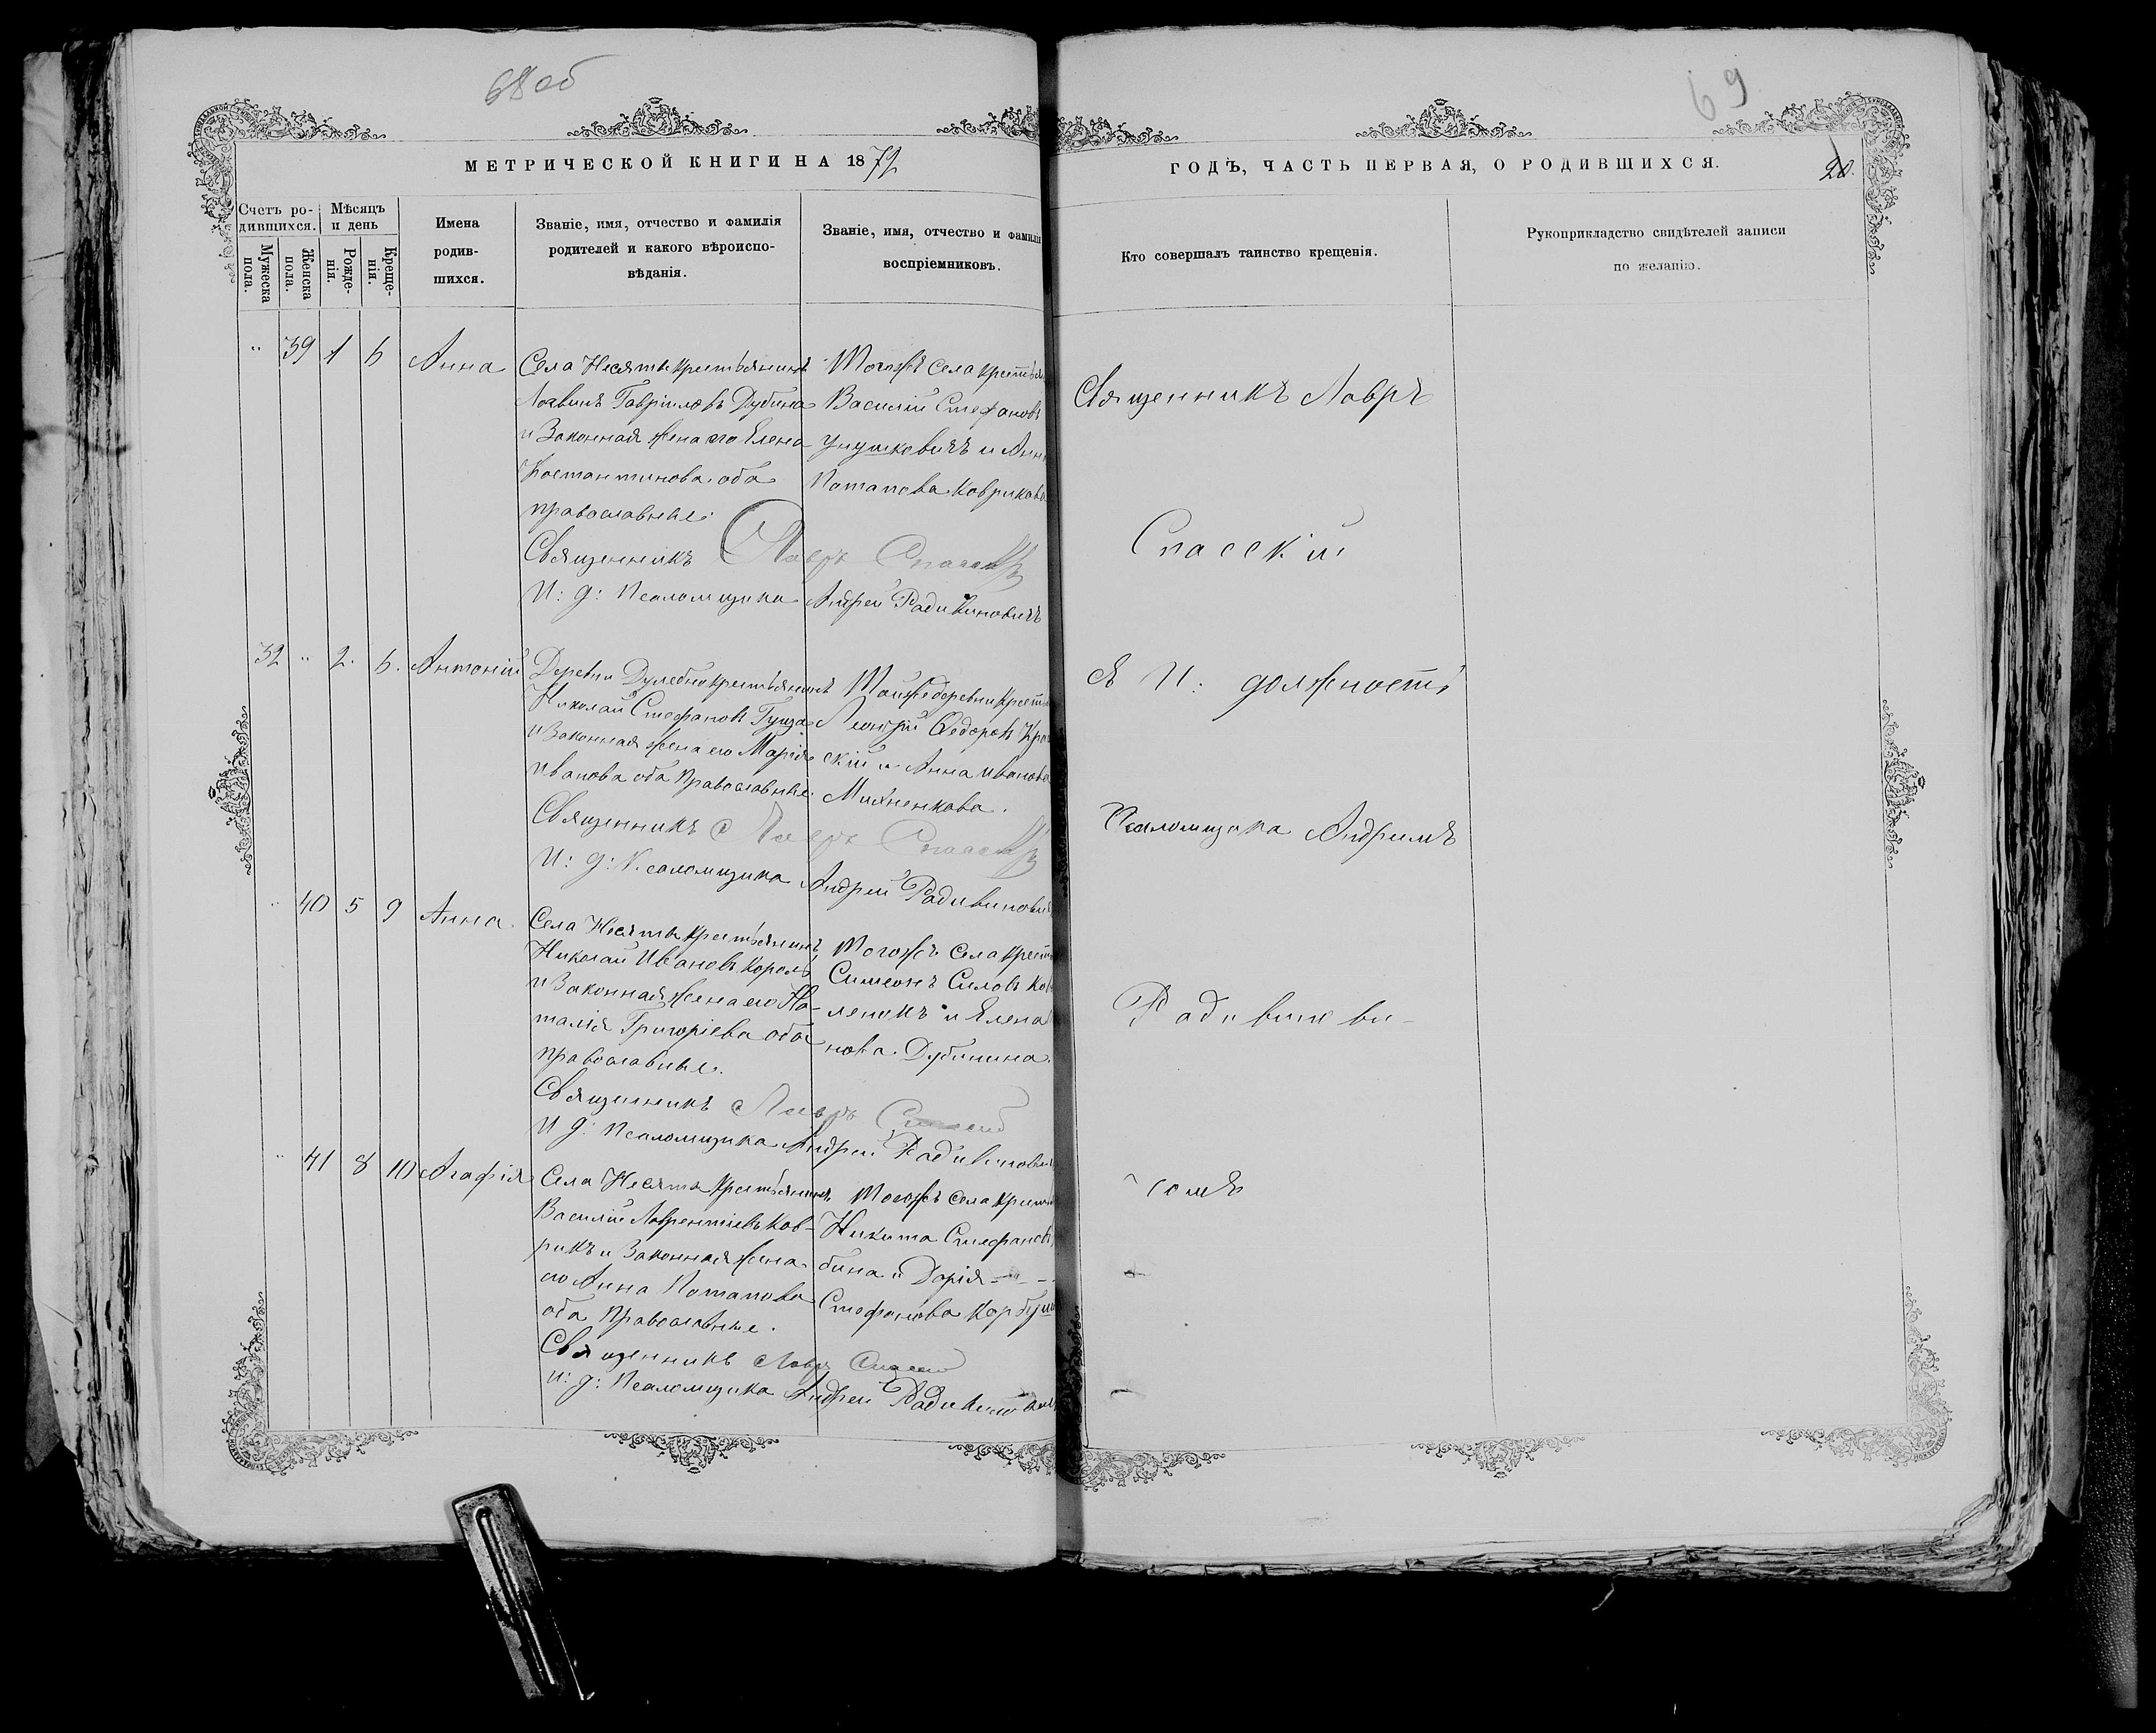 68 об
69
МЕТРИЧЕСКОЙ КНИГИ НА 1872
ГОДЪ, ЧАСТЬ ПЕРВАЯ, О РОДИВШИХСЯ.
20.
Счетъ родившихся.
Мужеска пола.
Женска пола.
Мѣсяцъ и день
Рожденія.
Крещенія.
Имена родившихся.
Званіе, имя, отчество и фамилія
родителей и какого вѣроисповѣданія.
Званіе, имя, отчество и фамилія
воспріемниковъ.
Кто совершалъ таинство крещенія.
Рукоприкладство свидѣтелей записи
по желанію.
" 39 1 6 Анна
Села Несяты крестьянинъ
Логвинъ Гавріиловъ Дубина
и Законная жена его Елена
Костантинова оба
православные.
Священникъ Лавръ Спасскій
И: д: Псаломщика Андрей Радивиновичъ
Тогожъ села крестьян
Василій Стефановъ
и Анн
Потапова Коврикова
32 " 2. 6. Антоній
Деревни Дулебно крестьянинъ
Николай Стефановъ Гуща
и Законная жена его Марія
Иванова оба Православные.
Священникъ Лавръ Спасскій
И: д: Псаломщика Андрей Радивинович
Тойже деревни крест
Леонтій Ѳедоровъ Кра
скій и Анна Иванова
Михненкова.
" 40 5 9 Анна.
Села Несяты крестьянинъ
Николай Ивановъ Король
и Законная жена его На-
талія Григоріева оба
православные.
Священникъ Лавръ Спасскій
И д: Псаломщика Андрей Радивинович
Тогожъ села крест
Симеонъ Силовъ Ков
ленокъ и Елена
нова Дубинина.
" 41 8 10 Агафія
Села Несяты крестьянинъ
Василій Лаврентіевъ Ков-
рикъ и Законная жена
его Анна Потапова
оба Православные.
Священникъ Лавръ Спасскій
И: д: Псаломщика Андрей Радивинович
Тогожъ села крестьян
Никита Стефановъ
бина и Дарія
Стефанова Корбу
Священникъ Лавръ
Спасскій
съ И: должность
Псаломщика Андреемъ
Радивинови-
чомъ